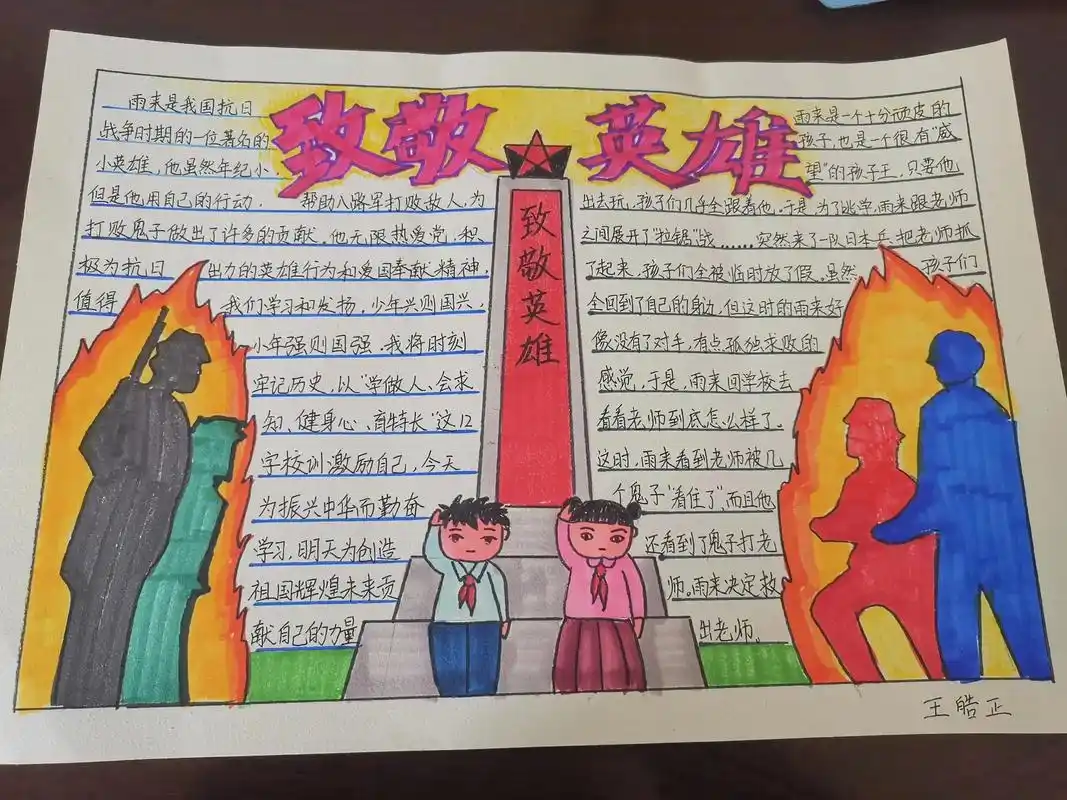 致敬 英雄
致敬英雄
雨来是我国抗日
战争时期的一位著名的
小英雄，他虽然年纪小，
但是他用自己的行动， 帮助八路军打败敌人，为
打败鬼子做出了许多的贡献。他无限热爱党，积
极为抗日 出力的英雄行为和爱国奉献精神，
值得 我们学习和发扬，少年兴则国兴，
少年强则国强。我将时刻
牢记历史，以“学做人、会求
知、健身心、育特长”这12
字校训激励自己，今天
为振兴中华而勤奋
学习，明天为创造
祖国辉煌未来贡
献自己的力量
雨来是一个十分顽皮的
孩子，也是一个很有“威
望”的孩子王，只要他
出去玩，孩子们几乎全跟着他。于是，为了逃学，雨来跟老师
之间展开了“拉锯”战......突然来了一队日本兵把老师抓
了起来，孩子们全被临时放了假。虽然 孩子们
全回到了自己的身边，但这时的雨来好
像没有了对手，有点孤独求败的
感觉，于是，雨来回学校去
看看老师到底怎么样了。
这时，雨来看到老师被几
个鬼子“看住了”，而且他
还看到了鬼子打老
师。雨来决定救
出老师。
王皓正